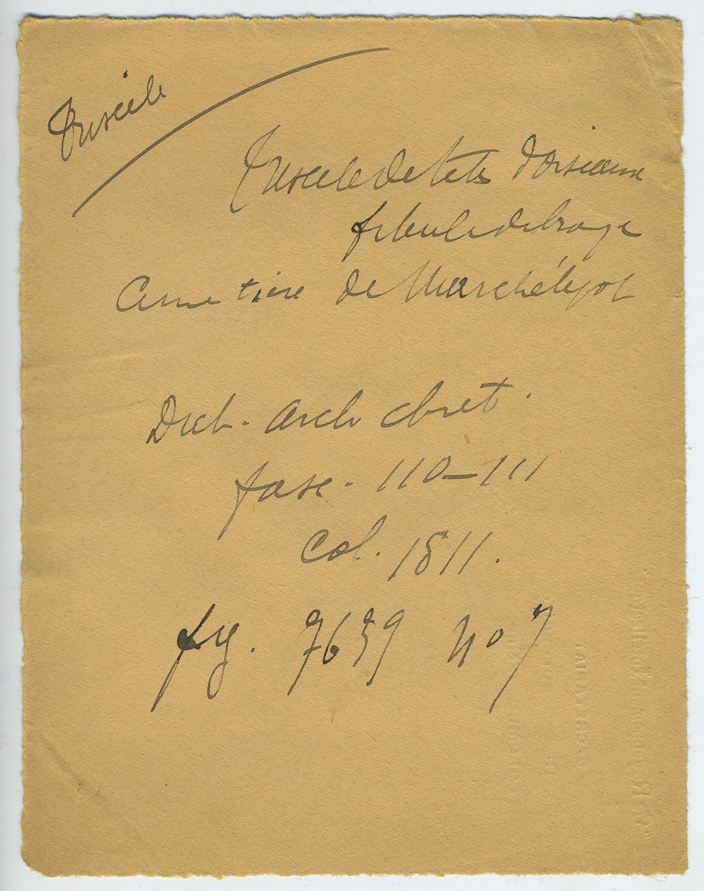 Triscèle
Triscele de tete d'oiseaux
fibule de bronze
Cimetière de Marchélepot
Dict. arch chret.
fasc. 110-111
Col. 1811.
fig. 7659 no 7